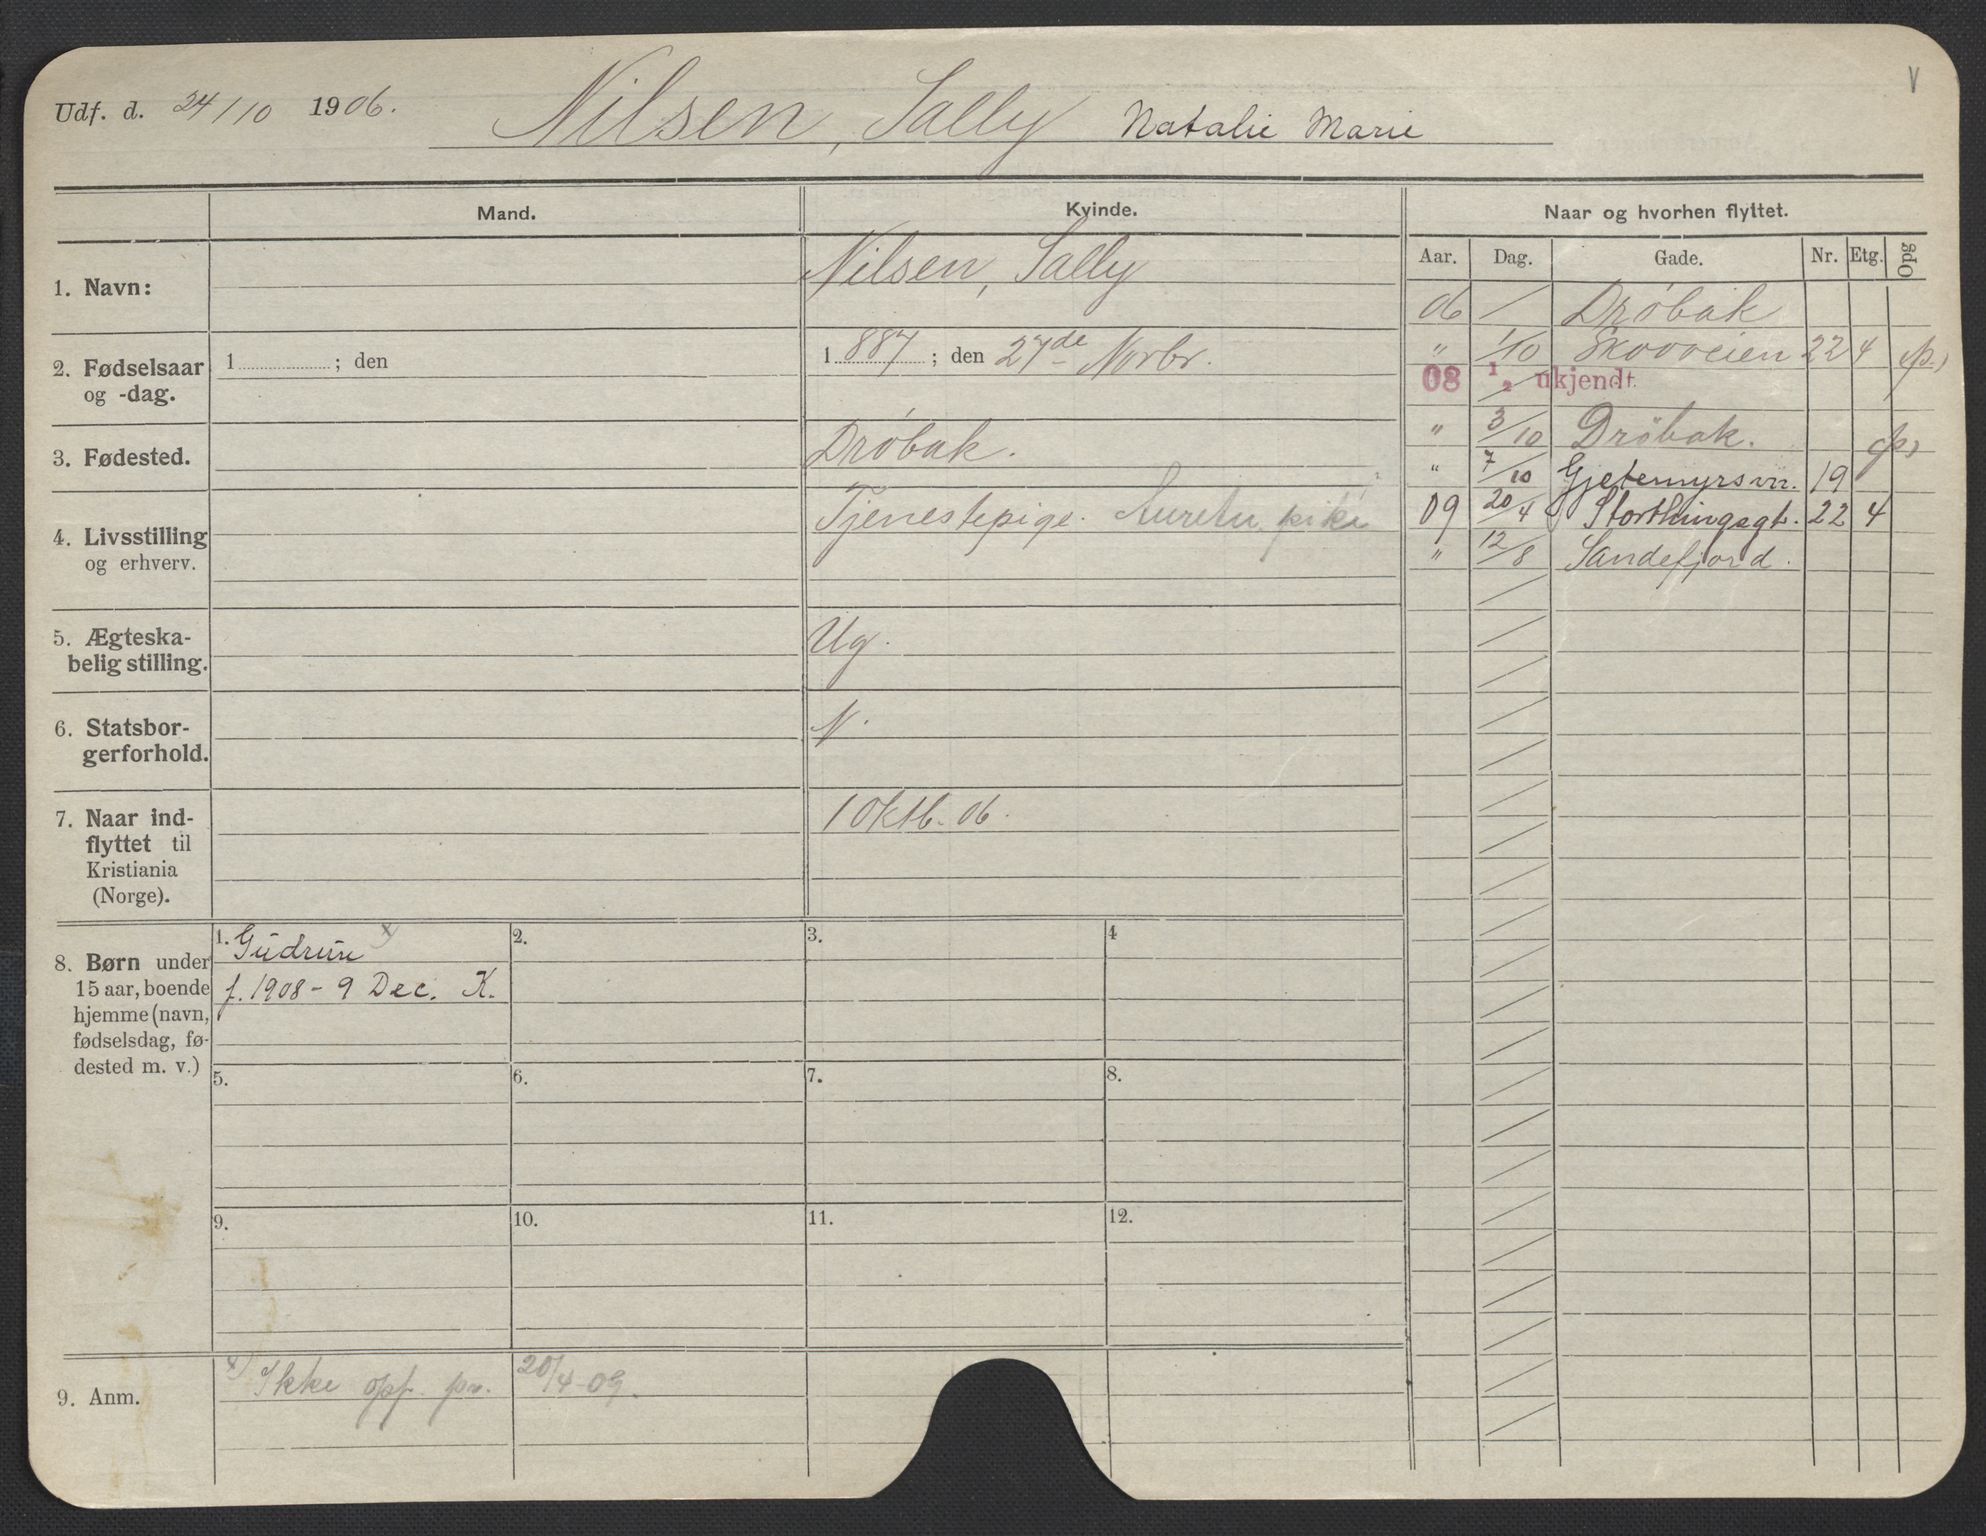 Udf. d. 24/10 1906. Nilsen, Sally Natalie Marie
V
Mand. Kvinde. Naar og hvorhen flyttet.
Aar. Dag. Gade. Nr. Etg. Opg
1. Navn: Nilsen, Sally
2. Fødselsaar og -dag. 1 ; den
1887 ; den 27de Novbr.
3. Fødested. Drøbak.
4. Livsstilling og erhverv. Tjenestepige.
5. Ægteska-
belig stilling. Ug.
6. Statsbor-
gerforhold. N.
7. Naar ind-
flyttet til
Kristiania
(Norge).
1 Oktb. 06.
06 Drøbak
" 1/10 Skovveien 22 4 p.)
08 1/2 ukjendt.
" 3/10 Drøbak.
" 7/10 Gjetemyrsvn. 19
09 20/4 Storthingsgt. 22 4
" 12/8 Sandefjord.
8. Børn under
15 aar, boende
hjemme (navn,
fødselsdag, fø-
dested m. v.)
1. Gudrun x)
f. 1908 - 9 Dec. K.
2. 3. 4
5. 6. 7. 8.
9. 10. 11. 12.
9. Anm. x) Ikke opf. pr. 20/4-09.